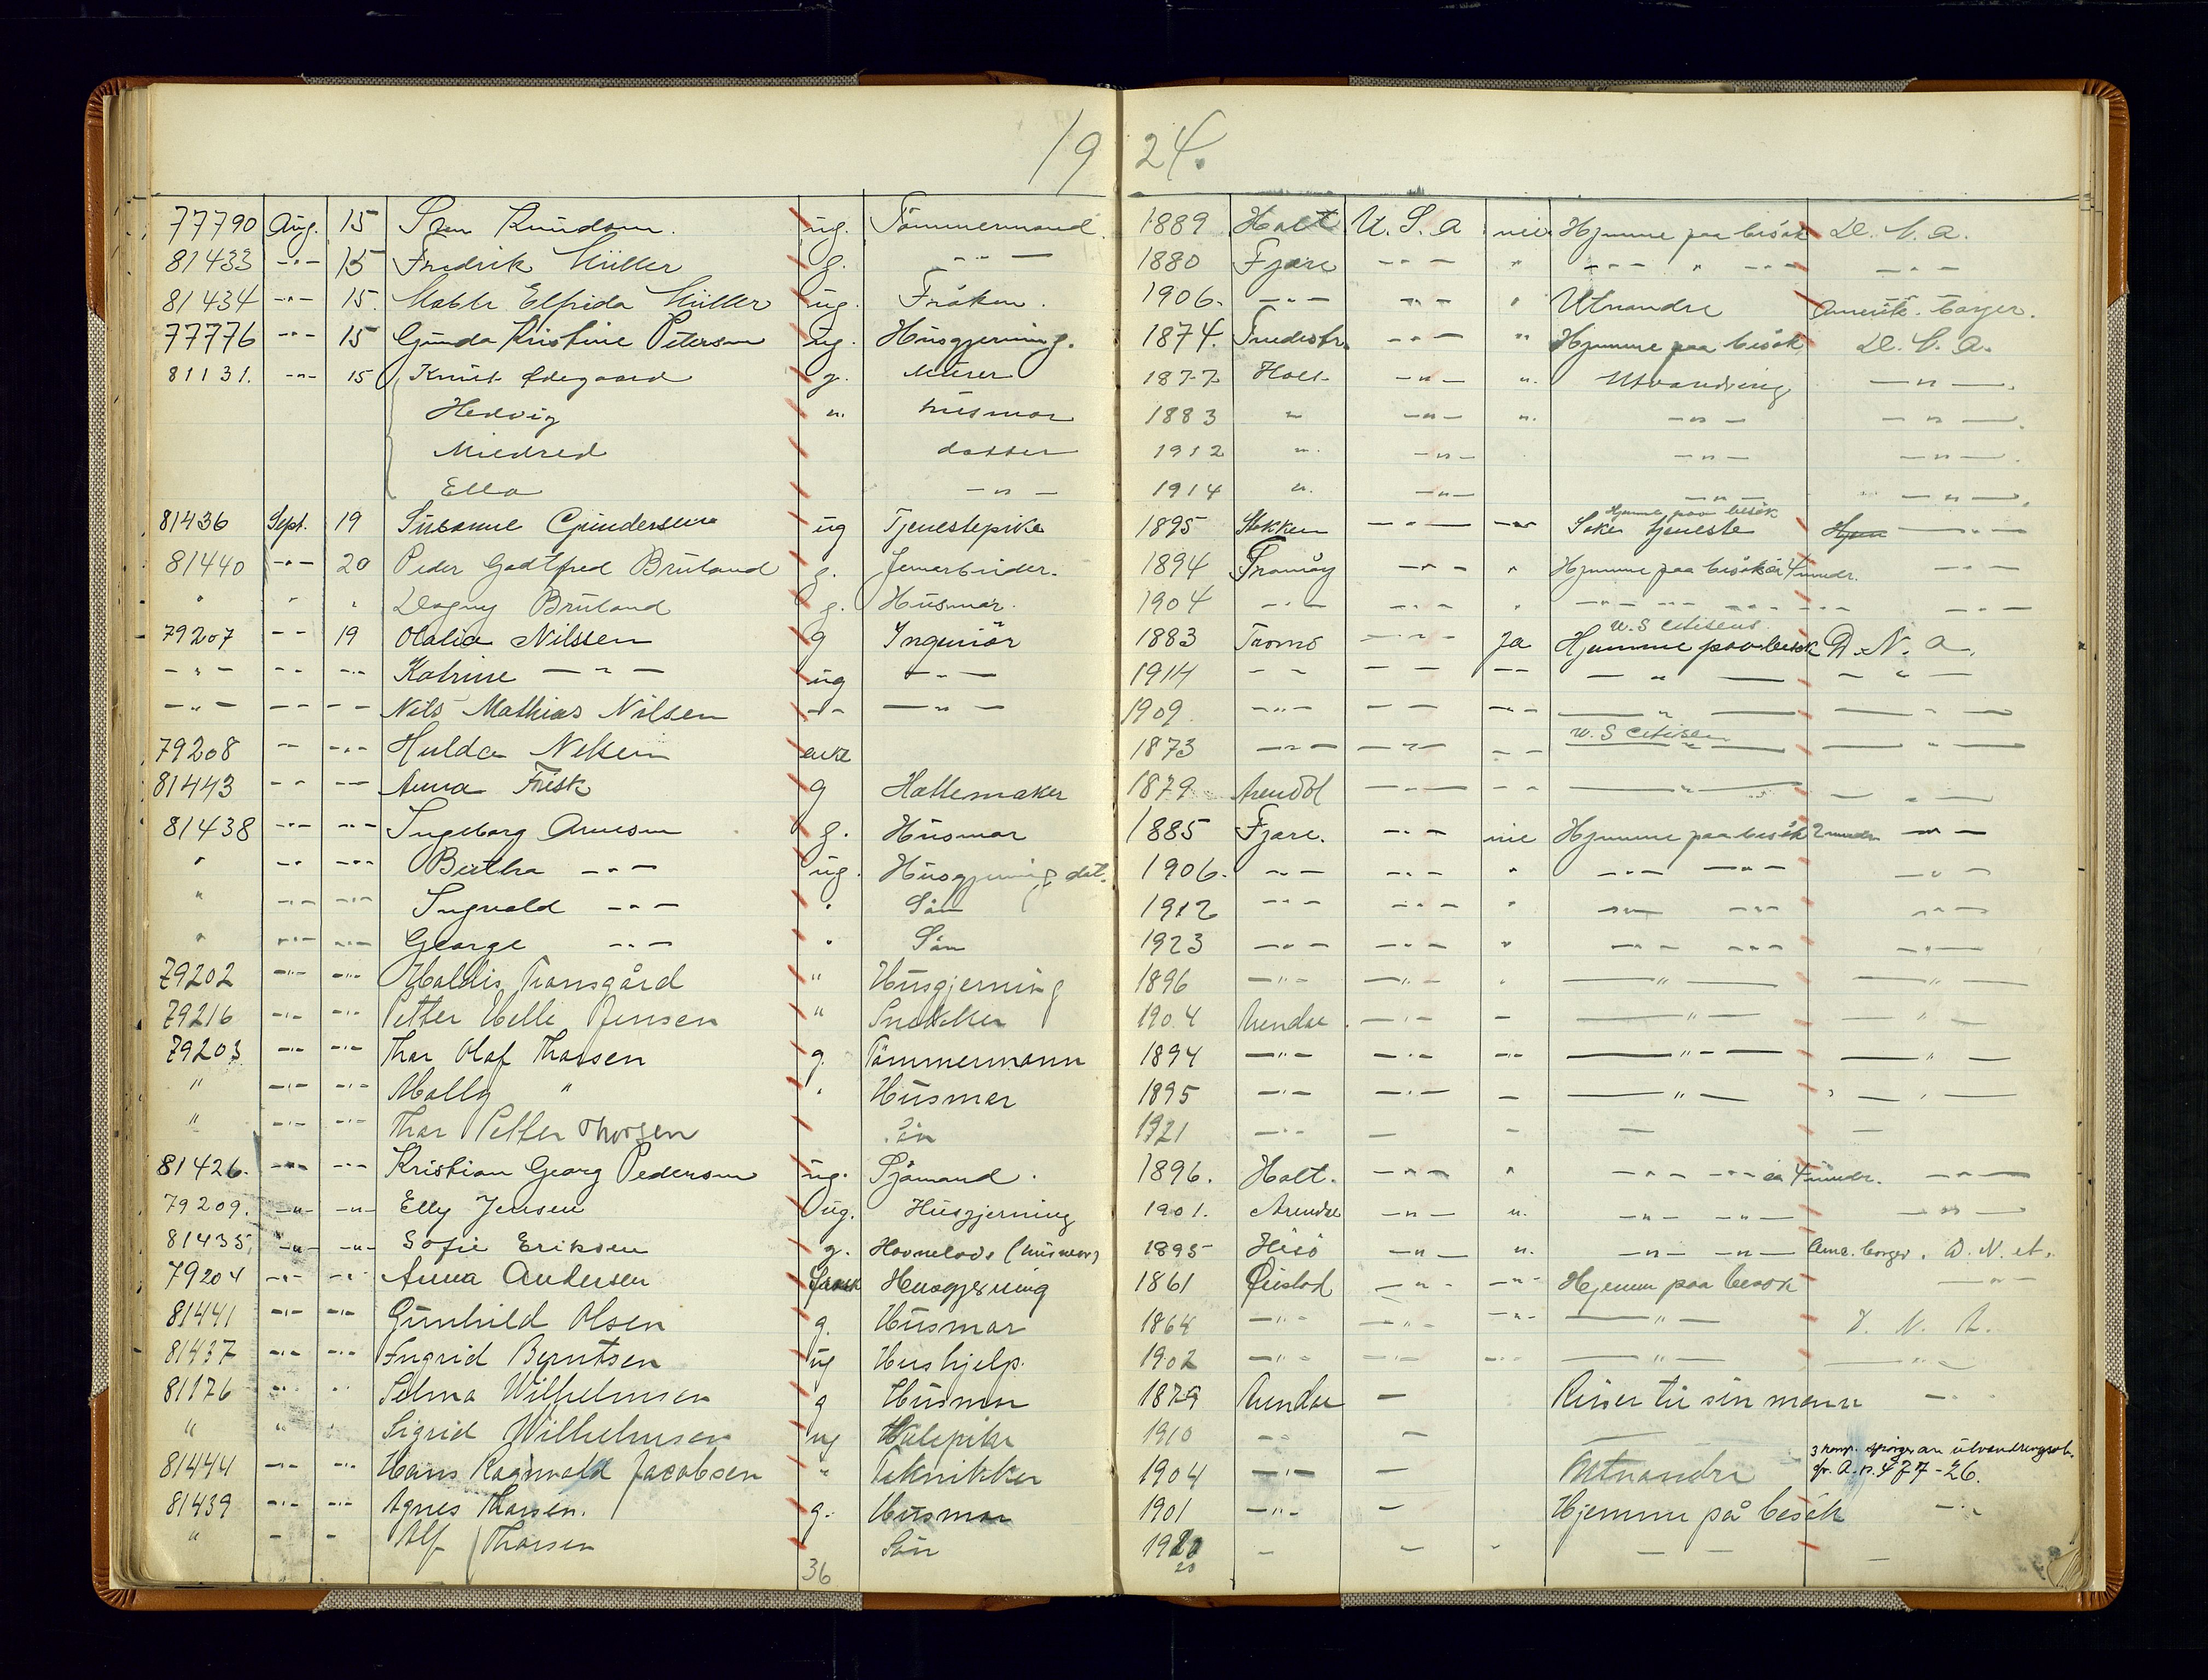 19 24.
77790 Aug. 15 Knudsen. ug. Tömmermand. 1889 Holt U. S. A nei Hjemme paa besök D. N. A.
81433 -"- 15 Fredrik Müller g. -"- 1880 Fjære -"- " -"- " -"- -"-
81434 -"- 15. Elfrida Müller ug. Fröken. 1906. -"- -"- " Utvandre Amerik. borger.
77776 -"- 15 Gunda Kristine Petersen ug. Husgjerning. 1874. -"- " Hjemme paa besök D. N. A.
81131. -"- 15 Knut Ødegaard g. Murer 1877 Holt -"- ". Utvandring -"-
Hedvig ". husmor 1883 " -"- ". -"- -"-
Mildred datter 1912 ". -"- -"- -"-
Ella -"- 1914 ". -"- -"- -"-
Hjemme paa besök
81436 Sept. 19 Susanne Gundersen ug Tjenestepike 1895 Stokken -"- -"- Söker tjeneste -"-
81440 -"- 20 Peder Godtfred Bruland g. Jernarbeider. 1894 Tromöy -"- " Hjemme paa besök ca 4 mndr. -"-
" " " Dagny Bruland g. Husmor. 1904 -"- -"- " -"- -"- -"- -"- -"-
W. S Citisens
79207 -- 19 Olalia Nilssen g Ingeniör 1883 Tromö -"- Ja Hjemme paa besök D. N. A.
-"- -- -"- Katrine -"- ug -"- 1914 -- -- -- -"- -"-
-"- -- -- Nils Mathias Nilsen -"- -"- 1909 -"- -- -"- -"- -"-
W. S Citisen
79208 -- -"- Hulda Nilsen enke 1873 -"- -"- -- -"- -"-
81443 -- -- Anna Frisk g Hattemaker 1879 Arendal -"- -- -"- -"-
81438 -"- -"- Ingeborg Arnesen g. Husmor 1885 Fjære. -"- nei Hjemme paa besök 2 mndr -"-
" -"- -"- Bertha -"- ug. Husgjerning dat. 1906. -"- -"- " -"- -"- -"-
" -"- -"- Ingvald -"- " Sön 1912 -"- -"- " -"- -"- -"-
" -"- -"- George -"- " Sön 1923 -"- -"- " -"- -"- -"-
79202 -"- -"- Haldis Tromsgård " Husgjerning 1896 -"- -"- " -"- -"-
79216 -"- -"- Petter Helle Jensen " Snekker 1904 Arendal -"- - -"- -"-
79203 -"- -"- Thor Olaf Thorsen g. Tömmermann 1894 -"- -"- -"- -"- -"-
" -"- -"- Molly " " Husmor 1895 -"- -"- - -"- -"-
" -"- -"- Thor Petter Thorsen Sön 1921 -"- - - - -
81426. -"- -"- Kristian Georg Pedersen ug. Sjömand. 1896. Holt. -"- " -"- -"- ca 4 mndr. -"-
79209. -"- -"- Elly Jensen ug. Husgjerning 1901. Arendal -"- ". -"- -"- -"-
81435. -"- -"- Sofie Eriksen g. (husmor) 1895 Hisö -"- ". -"- -"- Amr. borger. D. N. A.
79204 -"- -"- Anna Andersen Husgjerning 1861 Øiestad -"- -"- Hjemme paa besök -"-
81441 -"- -"- Gunhild Olsen g. Husmor 1864 -"- -"- -"- -"- D. N. A.
81437 -"- -"- Ingrid Berntsen ug Hushjelp. 1902 -"- -"- -"- -"- -"-
81176 -"- " Selma Wilhelmsen g Husmor 1879 Arendal - Reiser til sin mann -"-
" " " Sigrid Wilhelmsen ug 1910 -- - -
81444 -"- -"- Hans Ragnvald Jacobsen " Teknikker 1904 -"- - Utvandre 3 komp. spörger om utvandringsatt. A. n. 477-26.
81439 -"- -"- Agnes Thorsen. g. Husmor 1901 -"- - Hjemme på besök -"-
" - - Alf Thorsen Sön 1920 - - - - - -
20
36